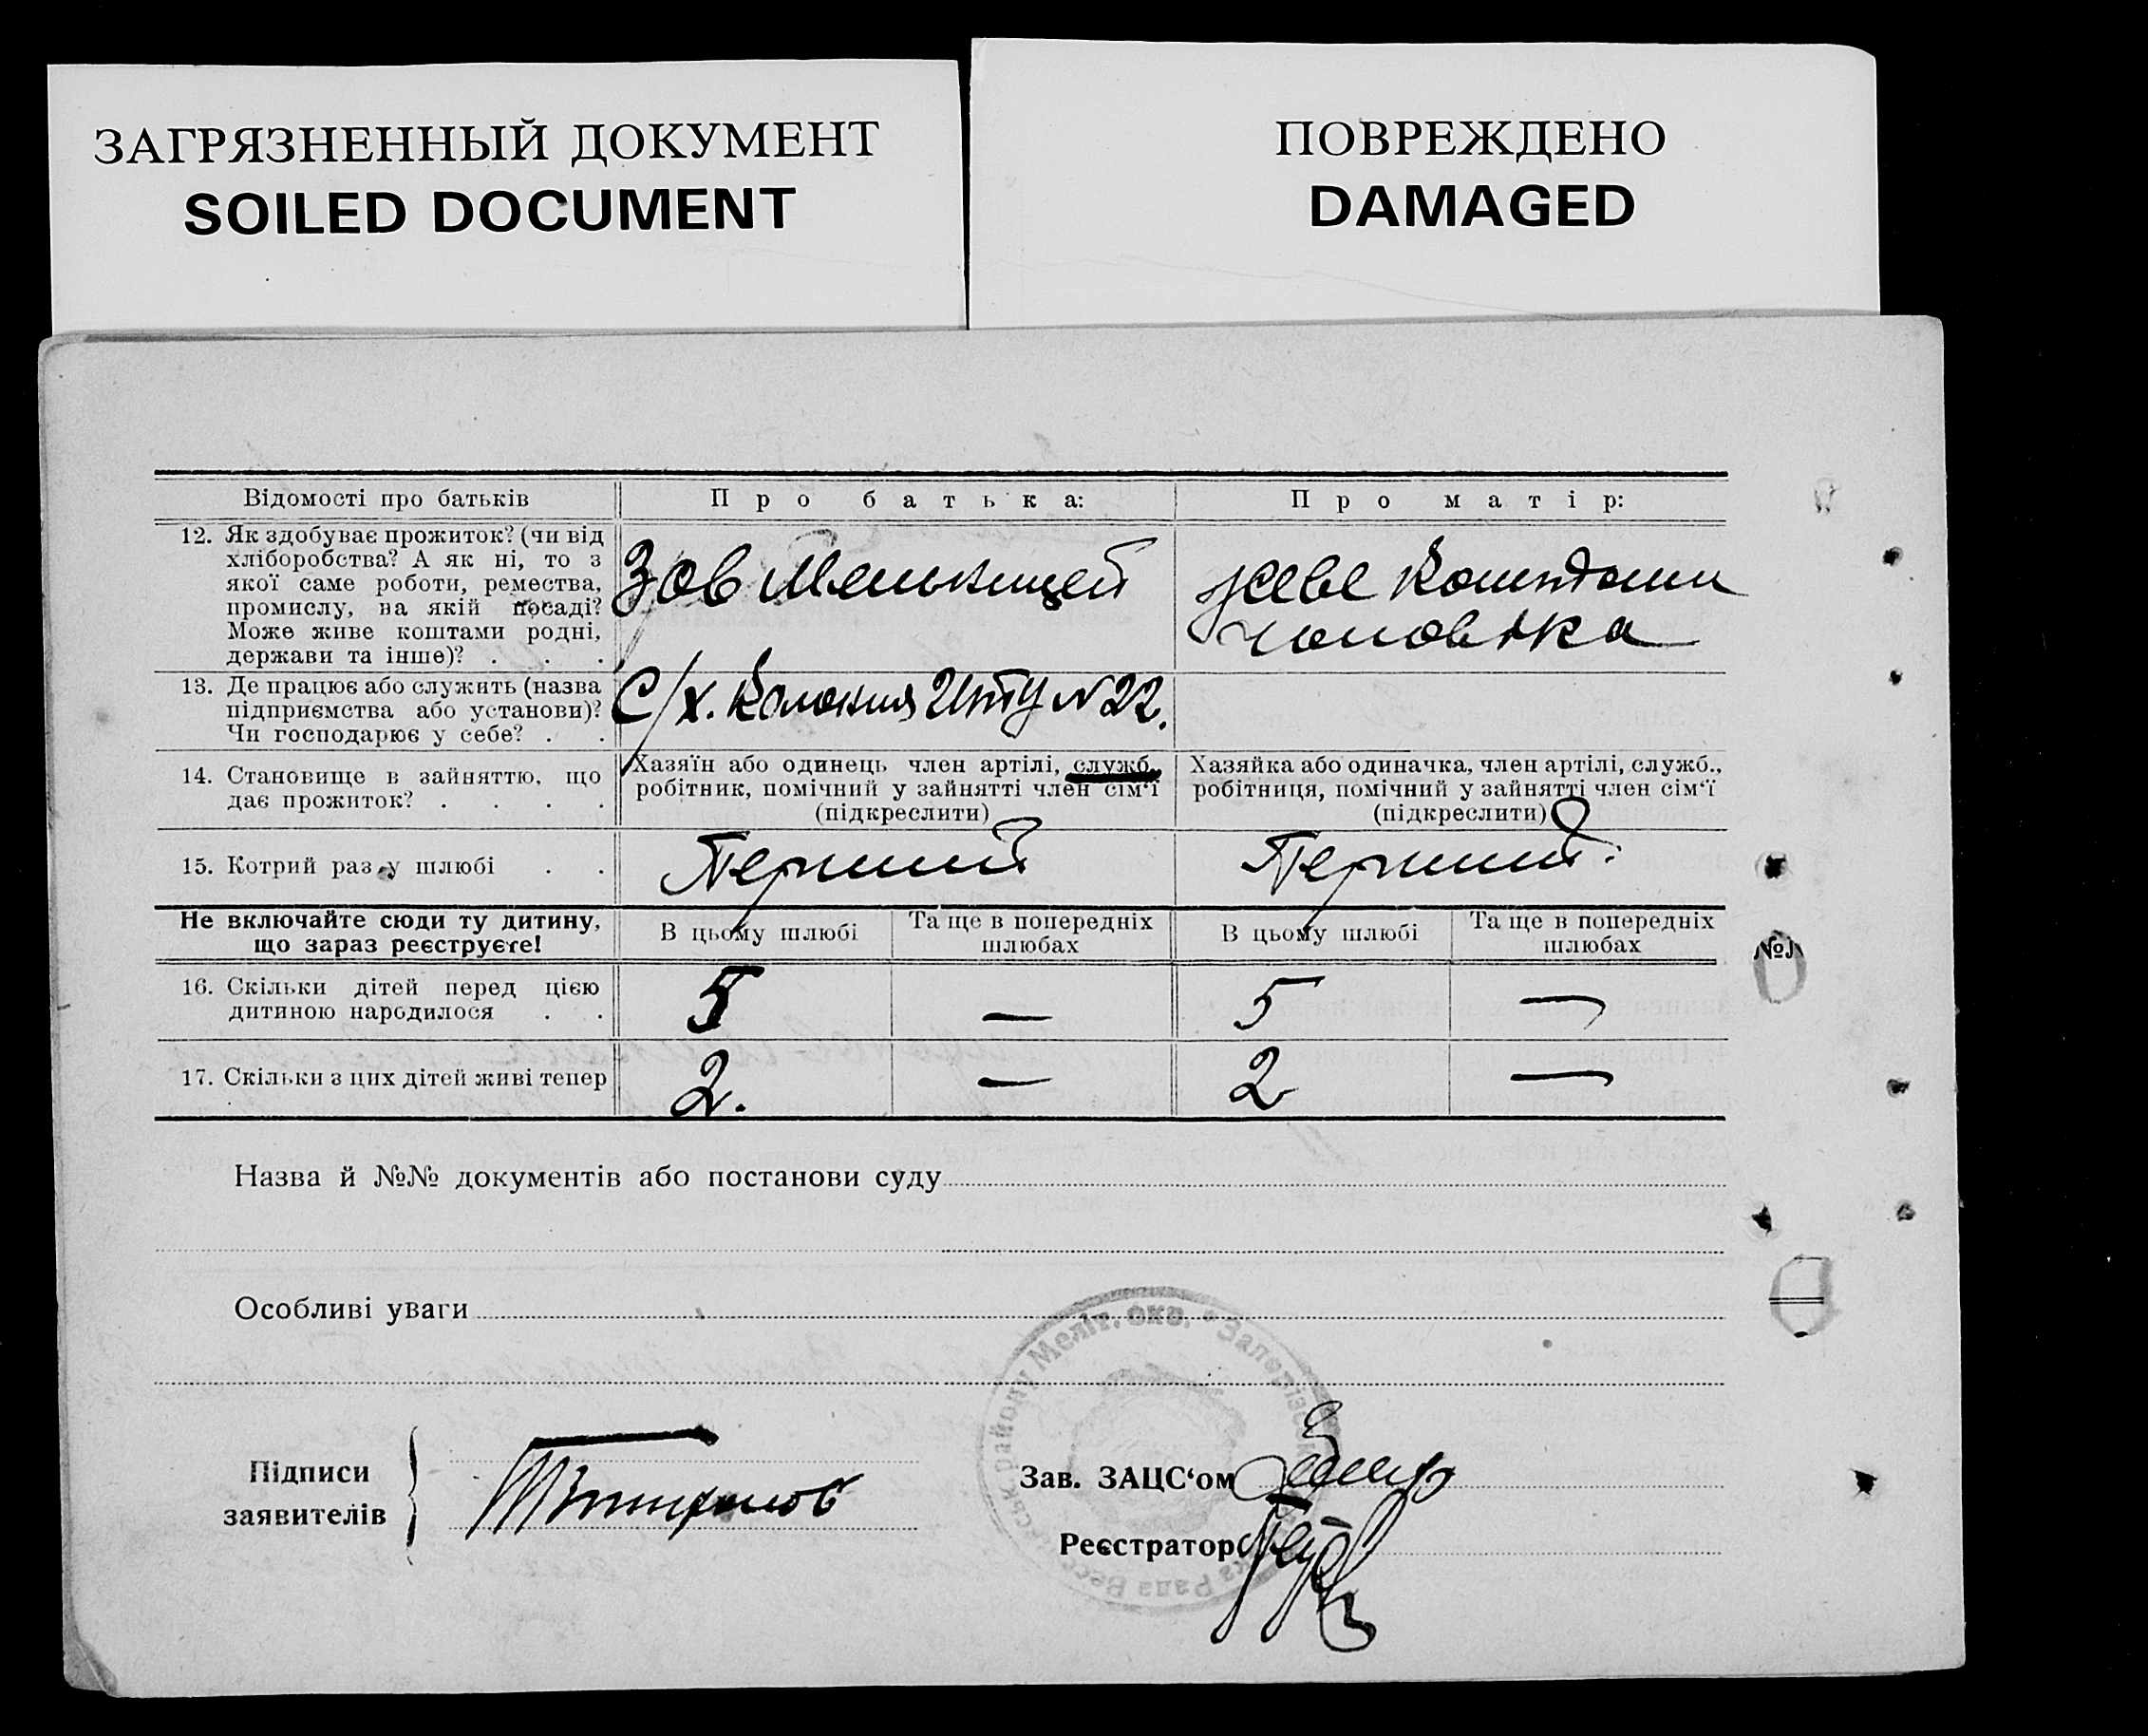 ЗАГРЯЗНЕННЫЙ ДОКУМЕНТ
SOILED DOCUMENT
ПОВРЕЖДЕНО
DAMAGED
Відомості про батьків
Про батька:
Про матір:
12. Як здобуває прожиток? (чи від
хліборобства? А як ні, то з
якої саме роботи, ремества,
промислу, на якій посаді?
Може живе коштами родні,
держави та інше)? . . .
Зав Мельницей
живе Коштами
чоловіка
13. Де працює або служить (назва
підприємства або установи)?
Чи господарює у себе? . .
С/х. Колония ИТУ N 22.
14. Становище в зайняттю, що
дає прожиток? . . . .
Хазяїн або одинець член артілі, служб.,
робітник, помічний у зайнятті член сім‘ї
(підкреслити)
Хазяйка або одиначка, член артілі, служб.,
робітниця, помічний у зайнятті член сім‘ї
(підкреслити)
15. Котрий раз у шлюбі . .
Перший
Перший.
Не включайте сюди ту дитину,
що зараз реєструєте!
В цьому шлюбі
Та ще в попередніх
шлюбах
В цьому шлюбі
Та ще в попередніх
шлюбах
16. Скільки дітей перед цією
дитиною народилося . .
5
—
5
—
17. Скільки з цих дітей живі тепер
2.
—
2
—
№
Назва й №№ документів або постанови суду
Особливі уваги
району Меліт. окр. • Запорізськ
Рада
Підписи
заявителів
Зав. ЗАЦС‘ом
Реєстратор